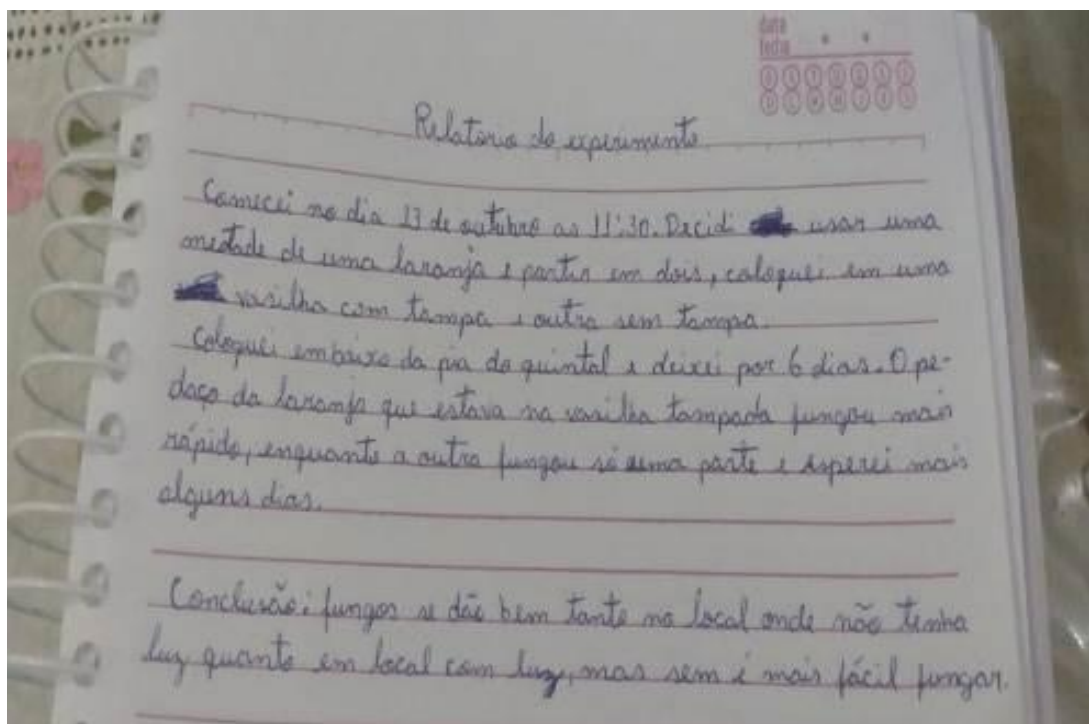 data
fecha
D S T Q Q S S
D L M M J V S
Relatorio do experimento
Comecei no dia 13 de outubro as 11:30. Decidi usar uma
metade de uma laranja e partir em dois, coloquei em uma
vasilha com tampa e outra sem tampa.
Coloquei embaixo da pia do quintal e deixei por 6 dias. O pe-
daço da laranja que estava na vasilha tampada fungou mais
rápido, enquanto a outra fungou só uma parte e esperei mais
alguns dias.
Conclusão: fungos se dão bem tanto no local onde não tenha
luz quanto em local com luz, mas sem é mais fácil fungar.